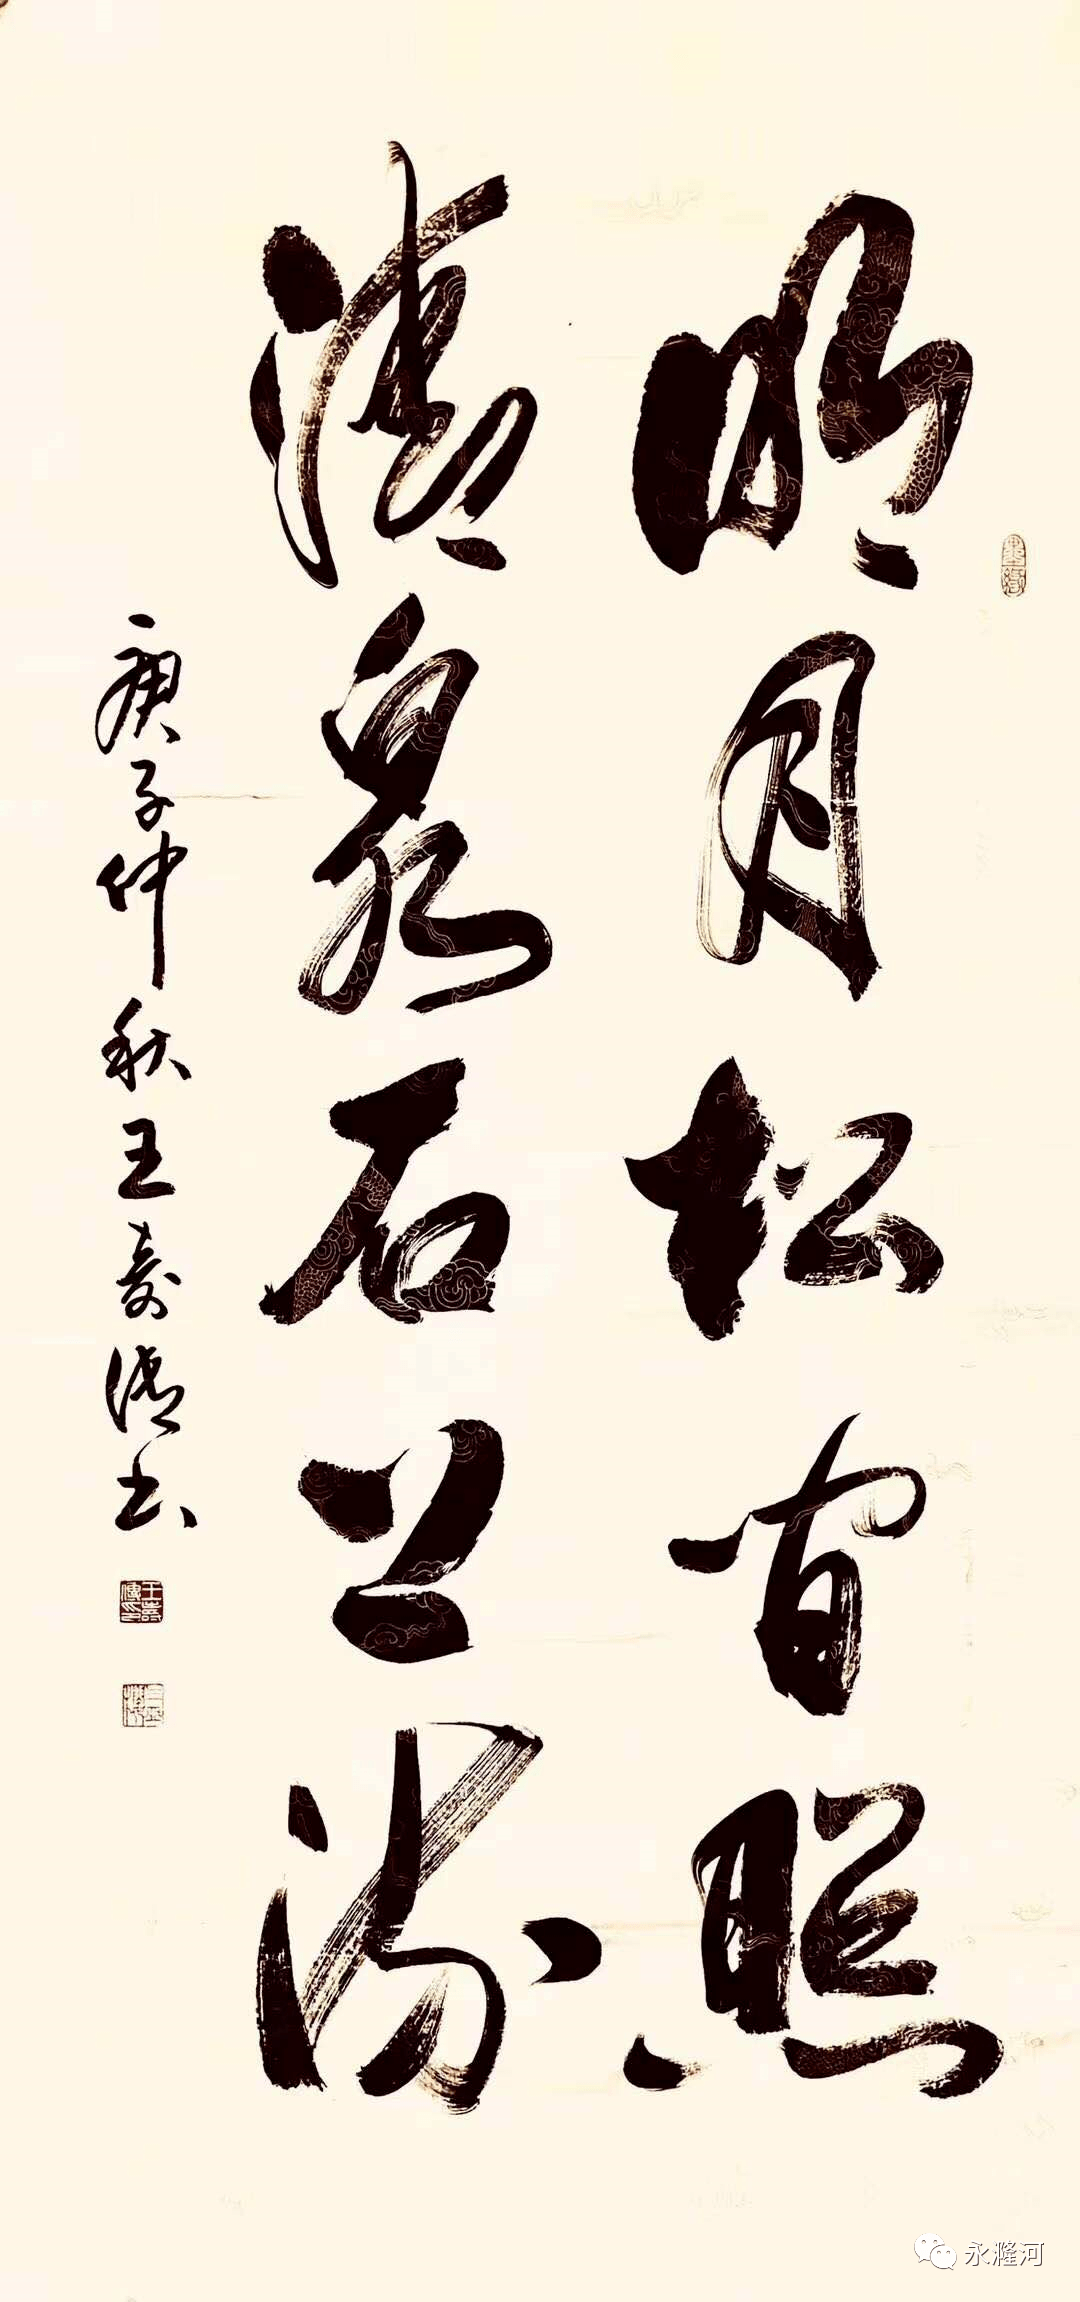 明月松間照
清泉石上流
庚子仲秋王寿书
永漋河